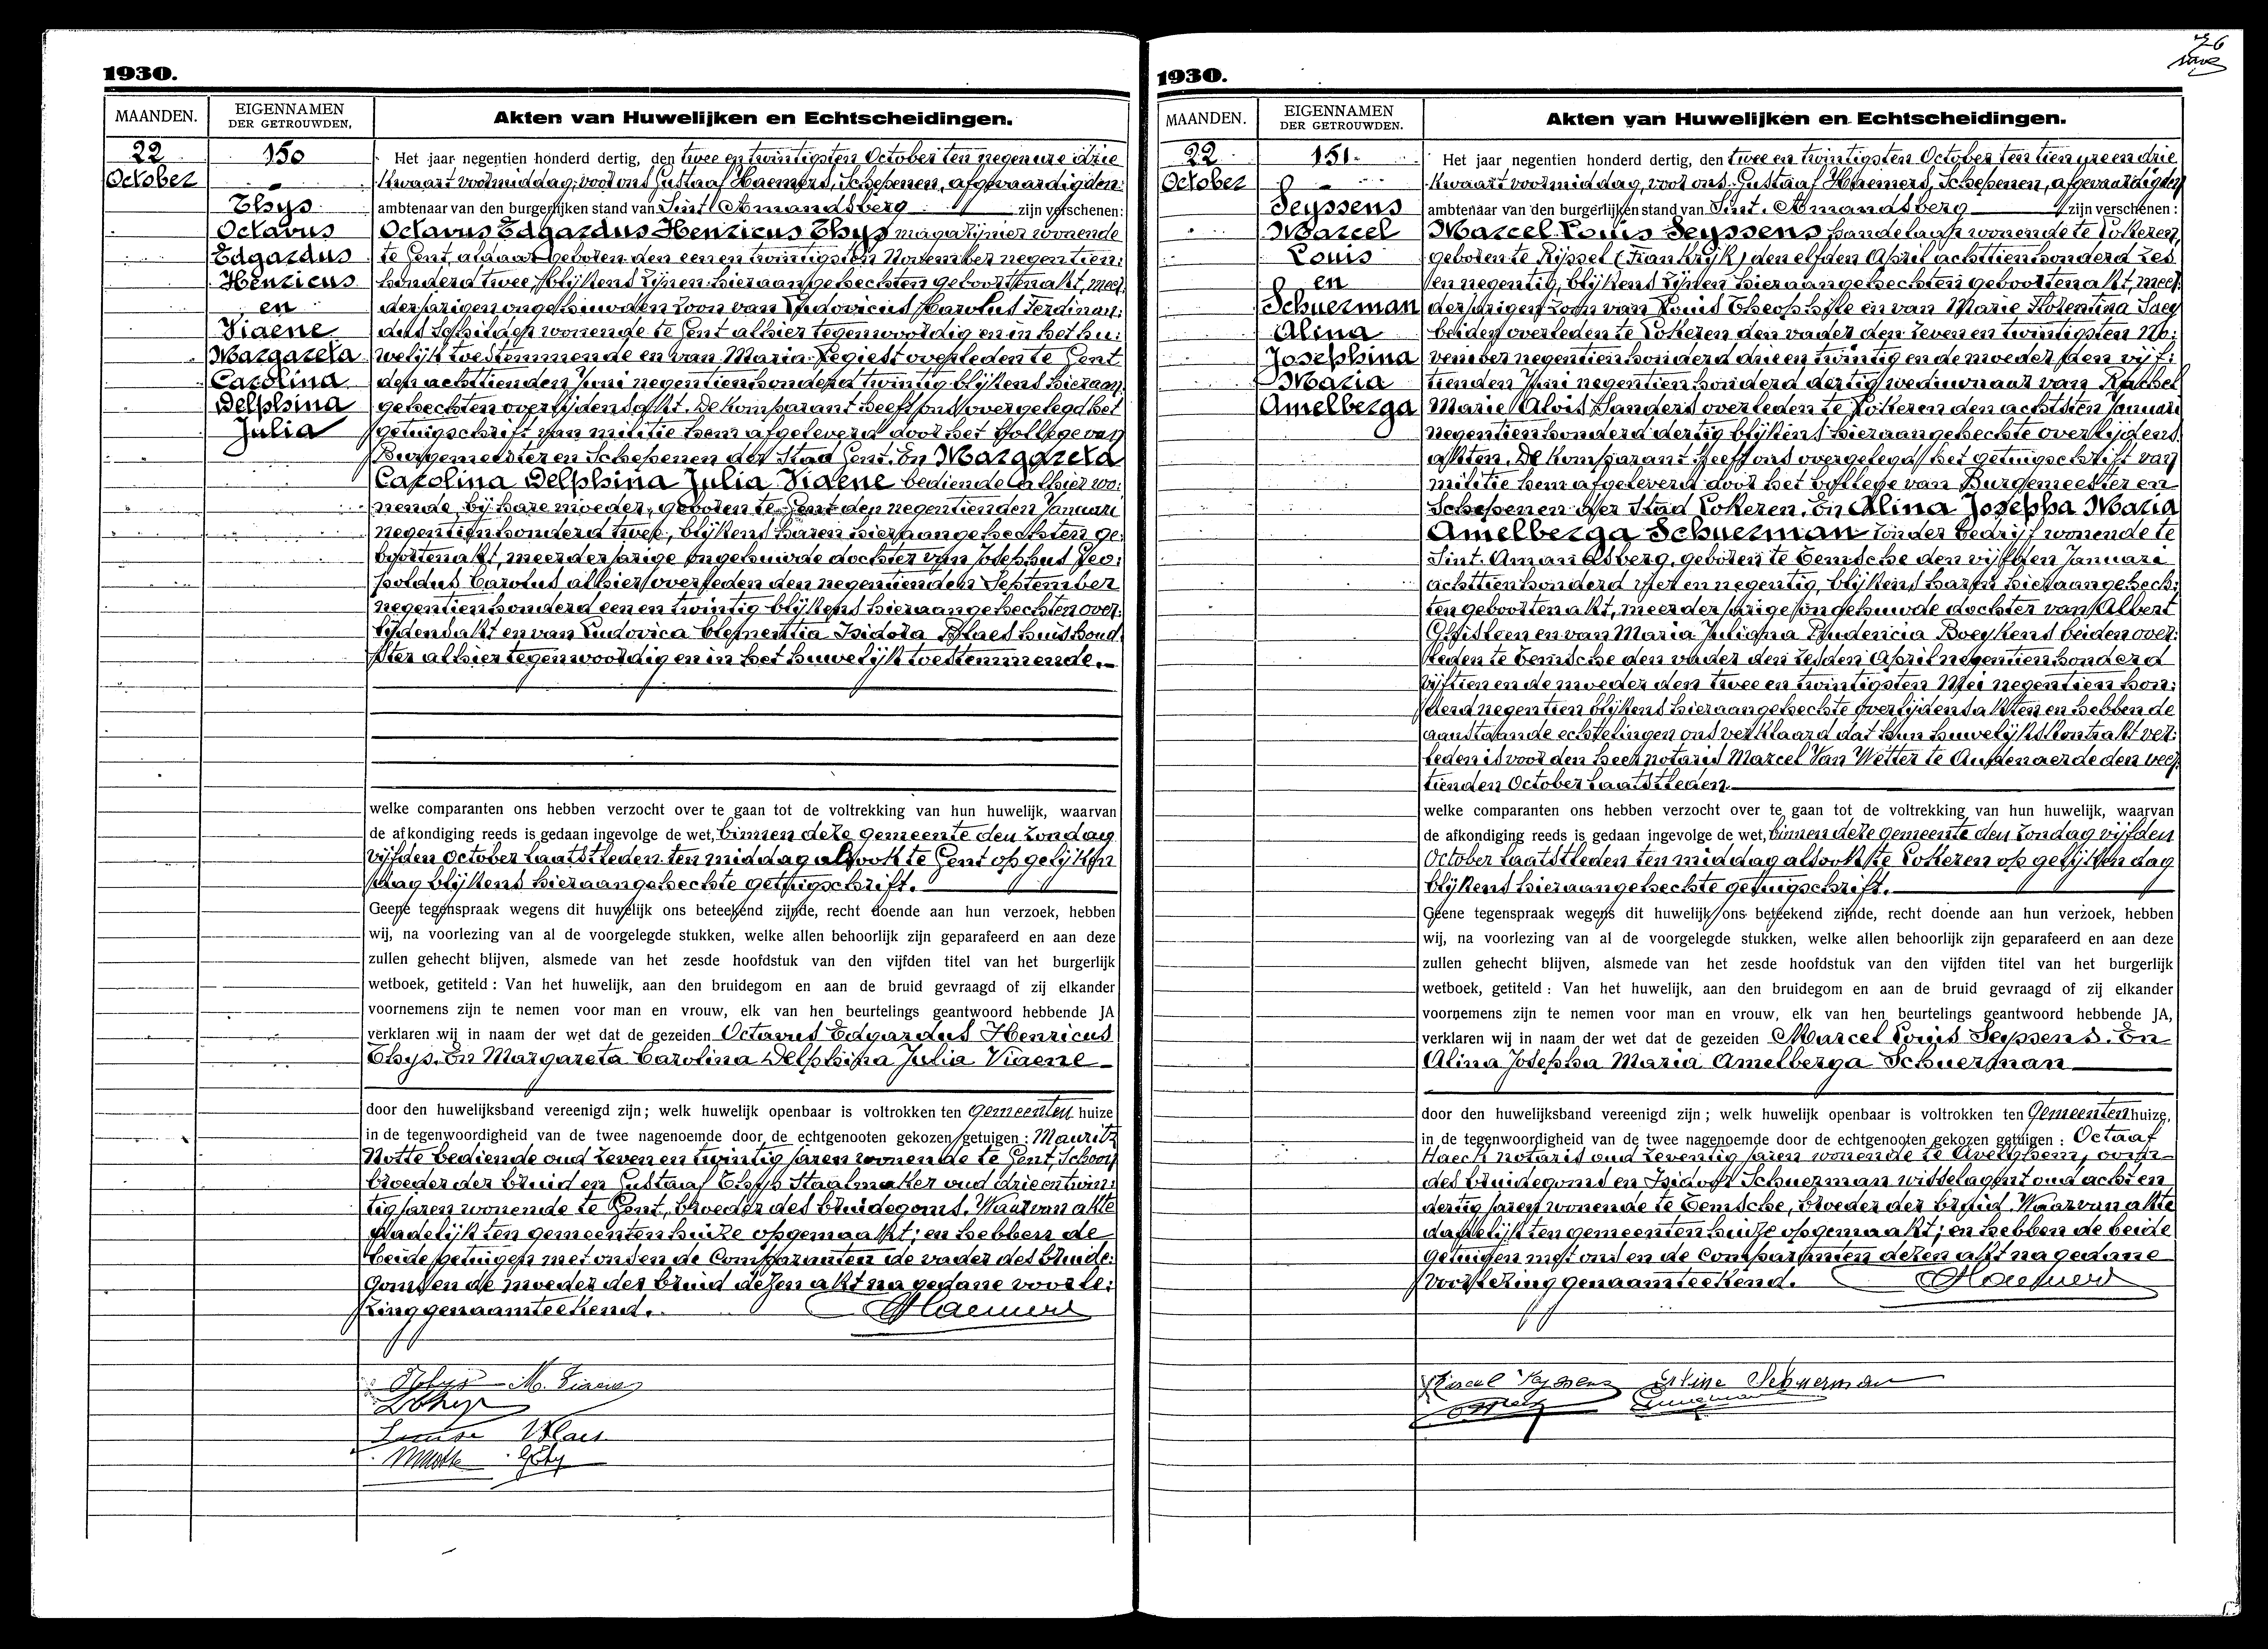 1930.
MAANDEN.
EIGENNAMEN
DER GETROUWDEN.
Akten van Huwelijken en Echtscheidingen.
22
October
150
Thys
Octavus
Edgardus
Henricus
en
Viaene
Margareta
Carolina
Delphina
Julia
Het jaar negentien honderd dertig, den twee en twintigsten October ten negen ure drie
kwaart voormiddag, voor ons Gustaaf Haemers, Schepenen, afgevaardigden
ambtenaar van den burgerlijken stand van Sint Amandsberg zijn verschenen:
Octavus Edgardus Henricus Thys magazijnier wonende
te Gent, aldaar geboren den een en twintigsten November negentien
honderd twee, blijkens zijnen hieraangehechten geboortenakt, meer
derjarigen ongehuwden zoon van Ludovicus Carolus Ferdinan:
dus wonende te Gent alhier tegenwoordig en in het hu:
welijk toestemmende en van Maria Regiest overleden te Gent
den achttienden Juni negentienhonderd twintig blijkens hieraan
gehechten overlijdensakt. De komparant heeft ons overgelegd het
getuigschrift van militie hem afgeleverd door het Kollege van
Burgemeester en Schepenen der Stad Gent. En Margareta
Carolina Delphina Julia Viaene bediende alhier wo:
nende bij hare moeder, geboren te Gent den negentienden Januari
negentienhonderd twee, blijkens haren hieraangehechten ge:
boortenakt, meerderjarige ongehuwde dochter van Josephus Leo:
poldus Carolus alhier overleden den negentienden September
negentienhonderd een en twintig blijkens hieraangehechten over:
lijdensakt en van Ludovica Clementia Isidora Blaes huishoud
ster alhier tegenwoordig en in het huwelijk toestemmende.
welke comparanten ons hebben verzocht over te gaan tot de voltrekking van hun huwelijk, waarvan
de afkondiging reeds is gedaan ingevolge de wet, binnen deze gemeente den zondag
vijfden October laatstleden ten middag alsook te Gent op gelijken
dag blijkens hieraangehechte getuigschrift.
Geene tegenspraak wegens dit huwelijk ons beteekend zijnde, recht doende aan hun verzoek, hebben
wij, na voorlezing van al de voorgelegde stukken, welke allen behoorlijk zijn geparafeerd en aan deze
zullen gehecht blijven, alsmede van het zesde hoofdstuk van den vijfden titel van het burgerlijk
wetboek, getiteld : Van het huwelijk, aan den bruidegom en aan de bruid gevraagd of zij elkander
voornemens zijn te nemen voor man en vrouw, elk van hen beurtelings geantwoord hebbende JA
verklaren wij in naam der wet dat de gezeiden Octavus Edgardus Henricus
Thys. En Margareta Carolina Delphina Julia Viaene
door den huwelijksband vereenigd zijn; welk huwelijk openbaar is voltrokken ten Gemeenten huize
in de tegenwoordigheid van de twee nagenoemde door de echtgenooten gekozen getuigen : Mauritz
Notte bediende oud zeven en twintig jaren wonende te Gent, Schoon
broeder der bruid en Gustaaf Thys Staalmaker oud drie en twin:
tig jaren wonende te Gent, broeder des bruidegoms. Waarvan akte
dadelijk ten gemeentenhuize opgemaakt; en hebben de
beide getuigen met ons en de Comparanten de vader des bruide:
goms en de moeder der bruid dezen akt na gedane voorle:
zing genaamteekend.
GHaemers
OThys M. Viaene
LThys
Louise Blaes
MNotte GThy
1930.
MAANDEN.
EIGENNAMEN
DER GETROUWDEN.
Akten van Huwelijken en Echtscheidingen.
22
October
151.
Seyssens
Marcel
Louis
en
Schuerman
Alina
Josephina
Maria
Amelberga
Het jaar negentien honderd dertig, den twee en twintigsten October ten tien ure en drie
kwaart voormiddag, voor ons Gustaaf Haemers, Schepenen, afgevaardigden
ambtenaar van den burgerlijken stand van Sint. Amandsberg zijn verschenen :
Marcel Louis Seyssens handelaar wonende te Lokeren,
geboren te Rijssel (Frankrijk) den elfden April achttienhonderd zes
en negentig, blijkens zijnen hieraangehechten geboortenakt, meer
derjarigen zoon van Louis Theophile en van Marie Florentina Saey
beiden overleden te Lokeren den vader den zeven en twintigsten No:
vember negentienhonderd drie en twintig en de moeder den vijf:
tienden Juni negentienhonderd dertig weduwnaar van Rachel
Marie Alois Sanders overleden te Lokeren den achtsten Januari
negentienhonderd dertig blijkens hieraangehechte overlijdens
akten. De komparant heeft ons overgelegd het getuigschrift van
militie hem afgeleverd door het kollege van Burgemeester en
Schepenen der Stad Lokeren. En Alina Josepha Maria
Amelberga Schuerman zonder bedrijf wonende te
Sint. Amandsberg, geboren te Temsche den vijfden Januari
achttienhonderd vier en negentig, blijkens haren hieraangehech:
ten geboortenakt, meerderjarige ongehuwde dochter van Albert
Ghisleen en van Maria Juliana Prudencia Boeykens beiden over:
leden te Temsche den vader den zesden April negentienhonderd
vijftien en de moeder den twee en twintigsten Mei negentien hon:
derd negentien blijkens hieraangehechte overlijdensakten en hebben de
aanstaande echtelingen ons verklaard dat hun huwelijkskontrakt ver:
leden is voor den heer notaris Marcel Van Wetter te Audenaerde den veer
tienden October laatstleden.
welke comparanten ons hebben verzocht over te gaan tot de voltrekking van hun huwelijk, waarvan
de afkondiging reeds is gedaan ingevolge de wet, binnen deze gemeente den zondag vijfden
October laatstleden ten middag alsook te Lokeren op gelijken dag
blijkens hieraangehechte getuigschrift.
Geene tegenspraak wegens dit huwelijk ons beteekend zijnde, recht doende aan hun verzoek, hebben
wij, na voorlezing van al de voorgelegde stukken, welke allen behoorlijk zijn geparafeerd en aan deze
zullen gehecht blijven, alsmede van het zesde hoofdstuk van den vijfden titel van het burgerlijk
wetboek, getiteld : Van het huwelijk, aan den bruidegom en aan de bruid gevraagd of zij elkander
voornemens zijn te nemen voor man en vrouw, elk van hen beurtelings geantwoord hebbende JA,
verklaren wij in naam der wet dat de gezeiden Marcel Louis Seyssens. En
Alina Josepha Maria Amelberga Schuerman
door den huwelijksband vereenigd zijn ; welk huwelijk openbaar is voltrokken ten Gemeenten huize,
in de tegenwoordigheid van de twee nagenoemde door de echtgenooten gekozen getuigen : Octaaf
Haeck notaris oud zeventig jaren wonende te Avelghem, oom
des bruidegoms en Isidoor Schuerman wisselagent oud acht en
dertig jaren wonende te Temsche, broeder der bruid. Waarvan akte
dadelijk ten gemeentenhuize opgemaakt; en hebben de beide
getuigen met ons en de Comparanten dezen akt na gedane
voorlezing genaamteekend.
GHaemers
Marcel Seyssens Aline Schuerman
76